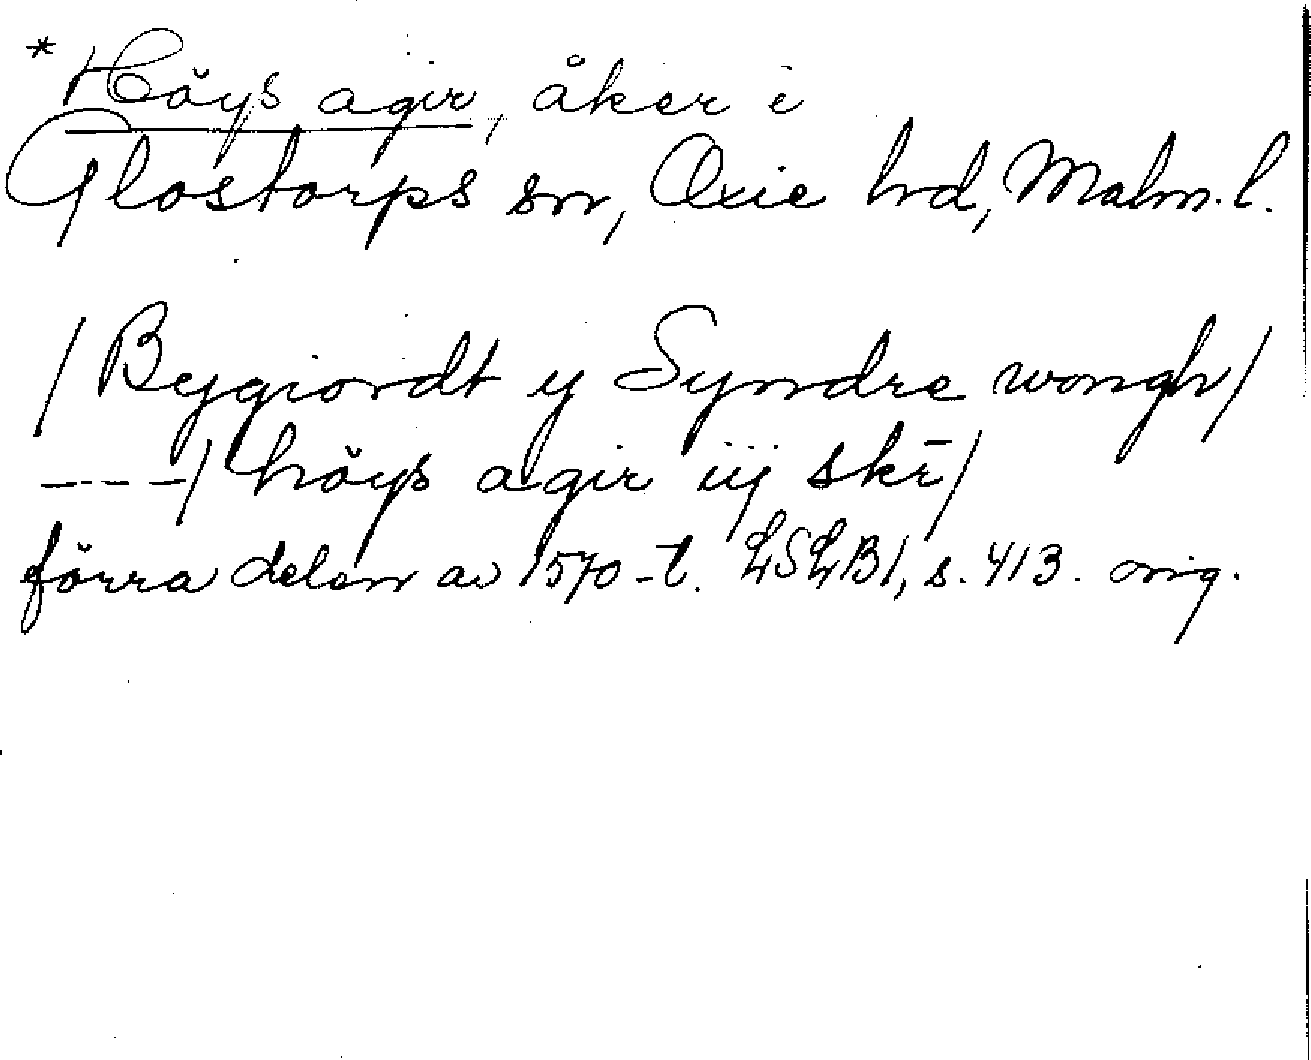 * Höys agir, åker i
Glostorps sn, Oxie hd, Malm. l.
/ Bygiordt y Syndre wongh /
---- / höys agir iij skr̄ /
förra delen av 1570-t. LSLB 1, s. 413. orig.